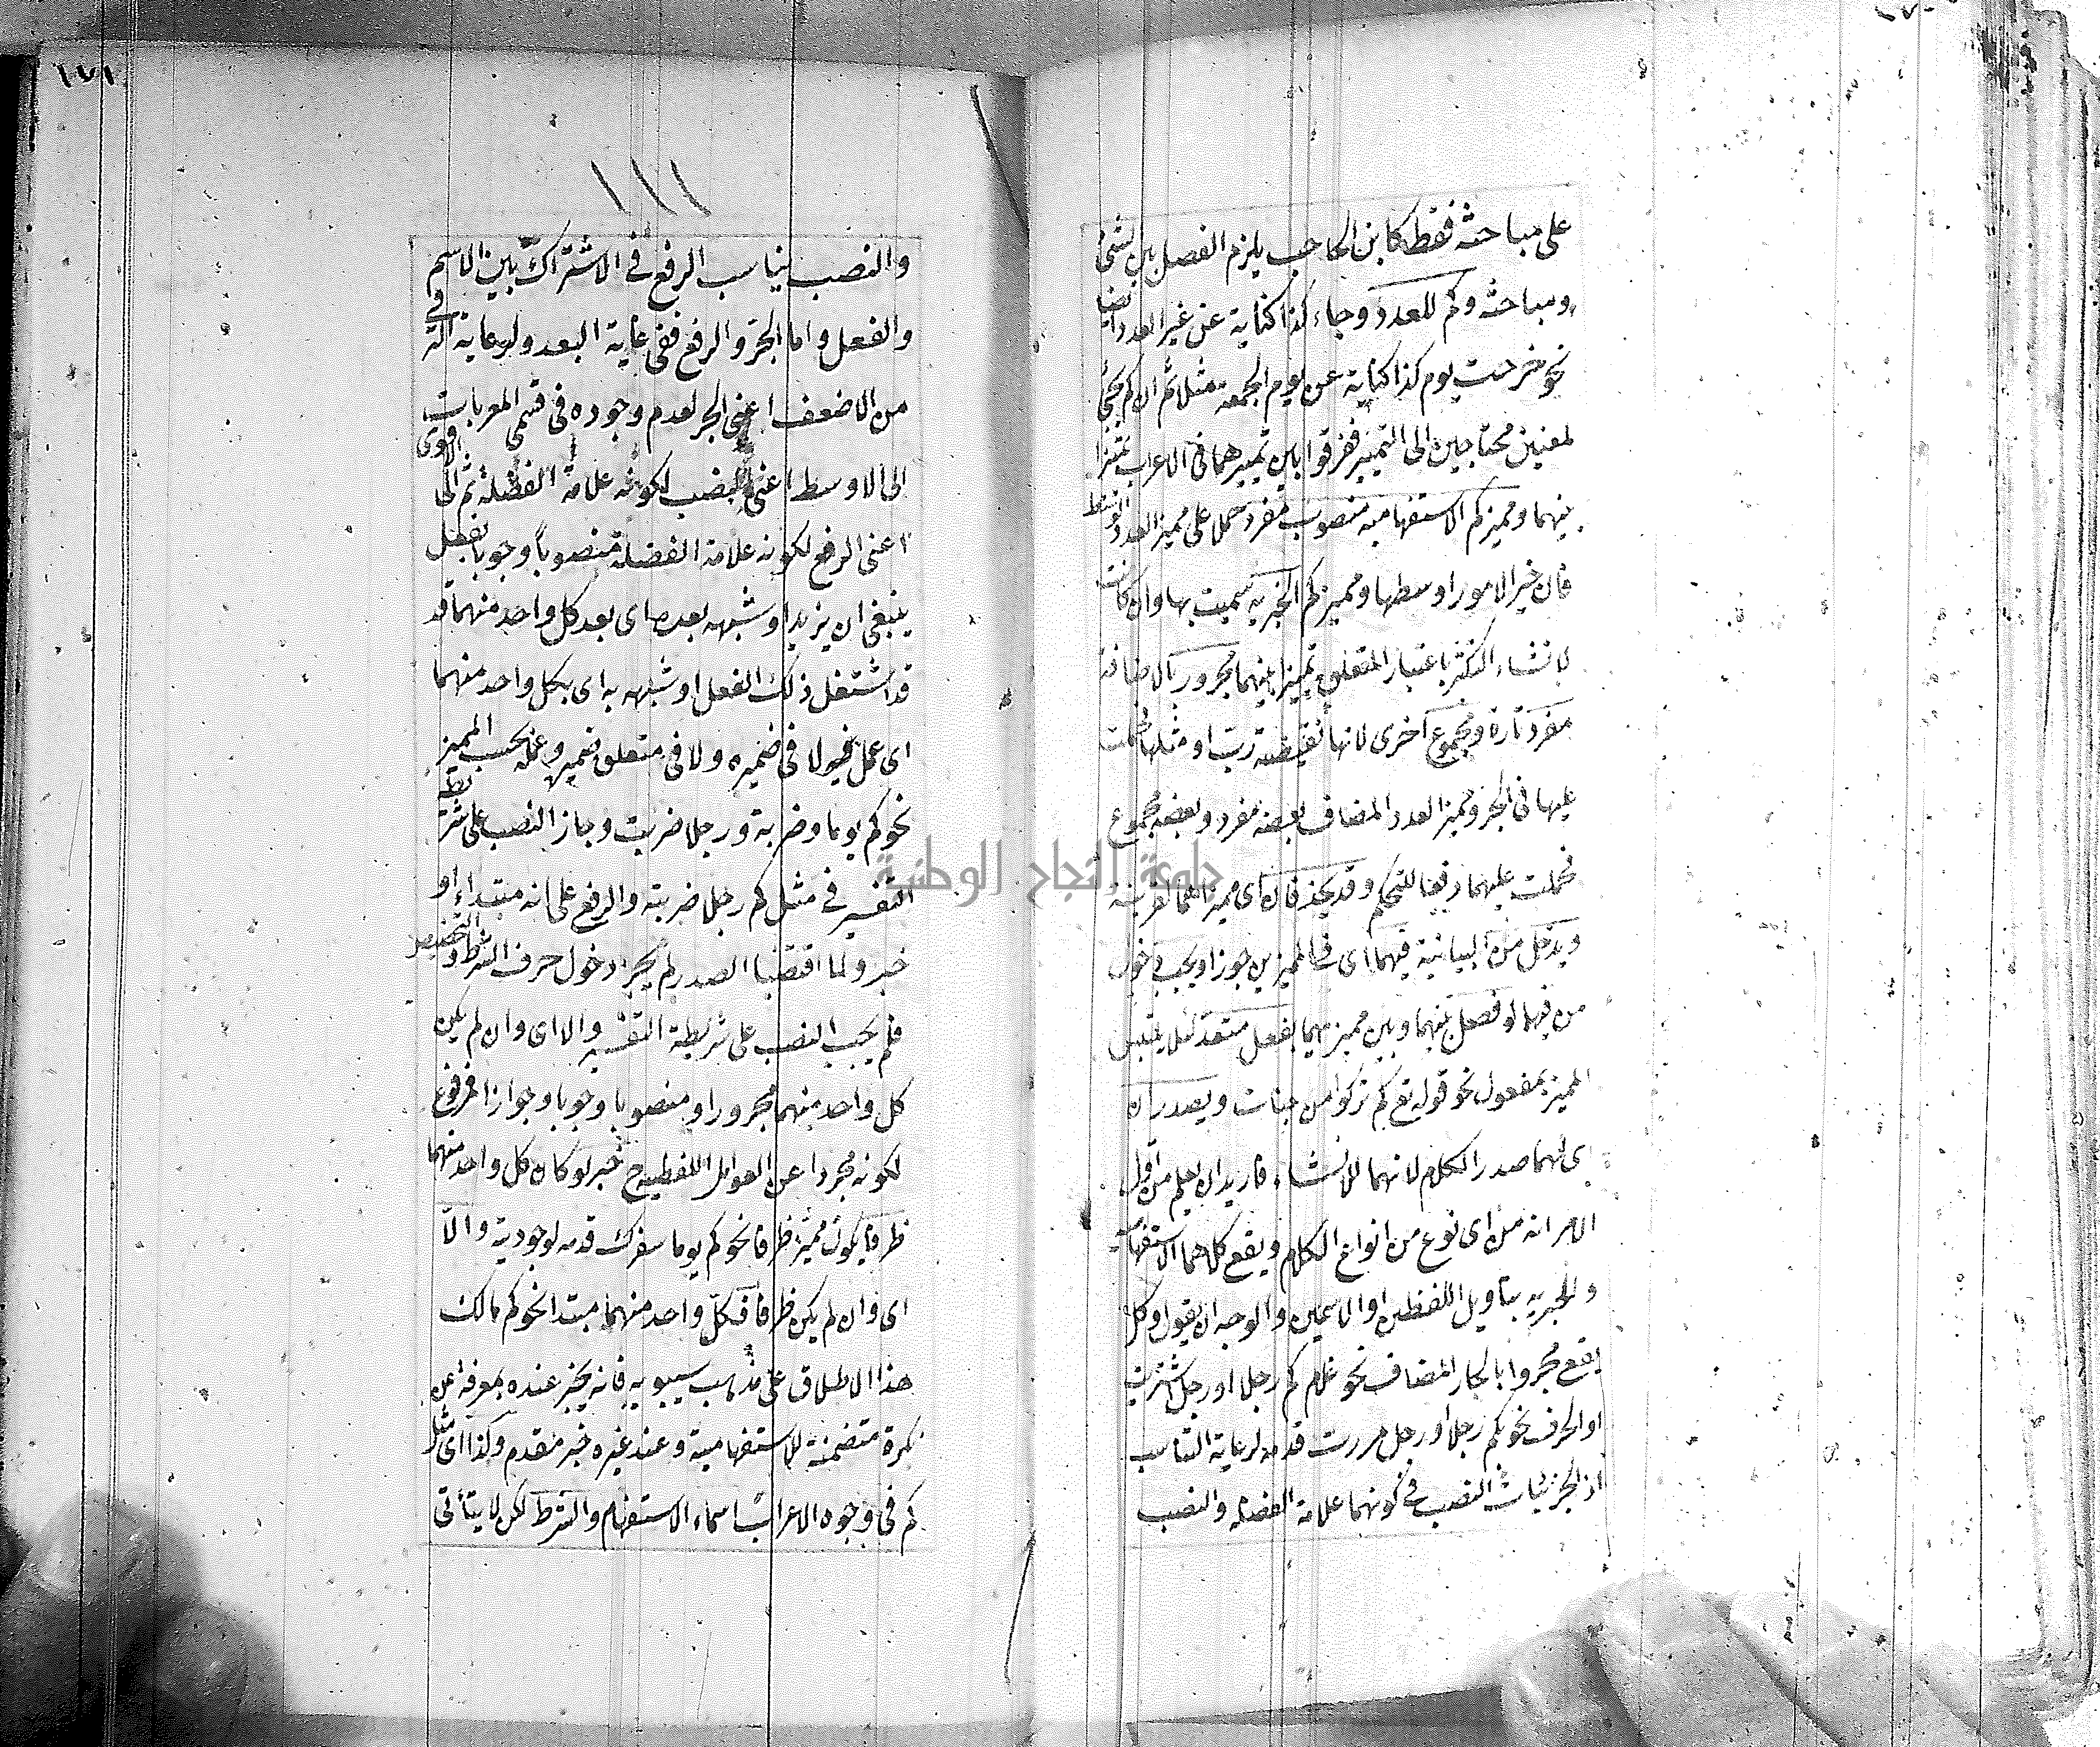 ١٧٠
على مباحثه فقط كابن الحاجب يلزم الفصل بين الشئ
ومباحثه وكم للعدد وجاء كذا كناية عن غير العدد ايضا
نحو خرجت يوم كذا كناية عن يوم الجمعة مثلا ثم ان كم يجئ
لمعنيين محتاجين الى التمييز ففرقوا بين تمييزهما فى الاعراب تمييزا
بينهما ومميز كم الاستفهامية منصوب مفرد حملا على مميز العدد الوسط
فان خير الامور اوسطها ومميز كم الخبرية سميت بها وان كانت
لانشاء التكثير باعتبار المتعلق تمييزا بينهما مجرور بالاضافة
مفرد تارة ومجموع اخرى لانها نقيضة رب او مثلها فحملت
عليها فى الجر ومميز العدد المضاف بعضه مفرد وبعضه مجموع
فحملت عليهما دفعا للتحكم وقد يحذفان اى مميزاهما لقرينة
ويدخل من البيانية فيهما اى فى المميزين جوزا ويجب دخول
من فيهما لو فصل بينهما وبين مميزيهما بفعل متعد لئلا يلتبس
المميز بمفعول نحو قوله تع كم تركوا من جنات ويصدران
اى لهما صدر الكلام لانهما للانشاء فاريد ان يعلم من اول
الامر انه من اى نوع من انواع الكلام ويقع كلاهما الاستفهامية
والخبرية بتاويل اللفظين او الاسمين والوجه ان يقول وكل
يقع مجرورا بالجار المضاف نحو غلام كم رجلا او رجل اشتريت
او الحرف نحو بكم رجلا او رجل مررت قدمه لرعاية التناسب
اذ الجر يناسب النصب فى كونهما علامة الفضلة والنصب
١٧١
١١١
والنصب يناسب الرفع فى الاشتراك بين الاسم
والفعل واما الجر والرفع ففى غاية البعد ولرعاية الترقى
من الاضعف اعنى الجر لعدم وجوده فى قسمى المعربات
الى الاوسط اعنى النصب لكونه علامة الفضلة ثم الى الاقوى
اعنى الرفع لكونه علامة الفضلة منصوبا وجوبا بفعل
ينبغى ان يزيد او شبهه بعده اى بعد كل واحد منهما قد
قد اشتغل ذلك الفعل او شبهه به اى بكل واحد منهما
اى عمل فيه لا فى ضميره ولا فى متعلق ضميره وعمله بحسب المميز
نحو كم يوما وضربة ورجلا ضربت وجاز النصب على شريطة
التفسير فى مثل كم رجلا ضربته والرفع على انه مبتداء او
خبر ولما اقتضيا الصدر لم يجز دخول حرف الشرط والتحضيض
فلم يجب النصب على شريطة التفسير والا اى وان لم يكن
كل واحد منهما مجرورا ومنصوبا وجوبا وجوازا فمرفوع
لكونه مجردا عن العوامل اللفظية ح خبر لو كان كل واحد منهما
ظرفا يكون مميزه ظرفا نحو كم يوما سفرك قدمه لوجوديته والا
اى وان لم يكن ظرفا فكل واحد منهما مبتدا نحو كم مالك
هذا الاطلاق على مذهب سيبويه فانه يخبر عنده بمعرفة عن
نكرة متضمنة للاستفهامية وعند غيره خبر مقدم وكذا اى مثل
كم فى وجوه الاعراب اسماء الاستفهام والشرط لكن لا يتأتى
جامعة النجاح الوطنية